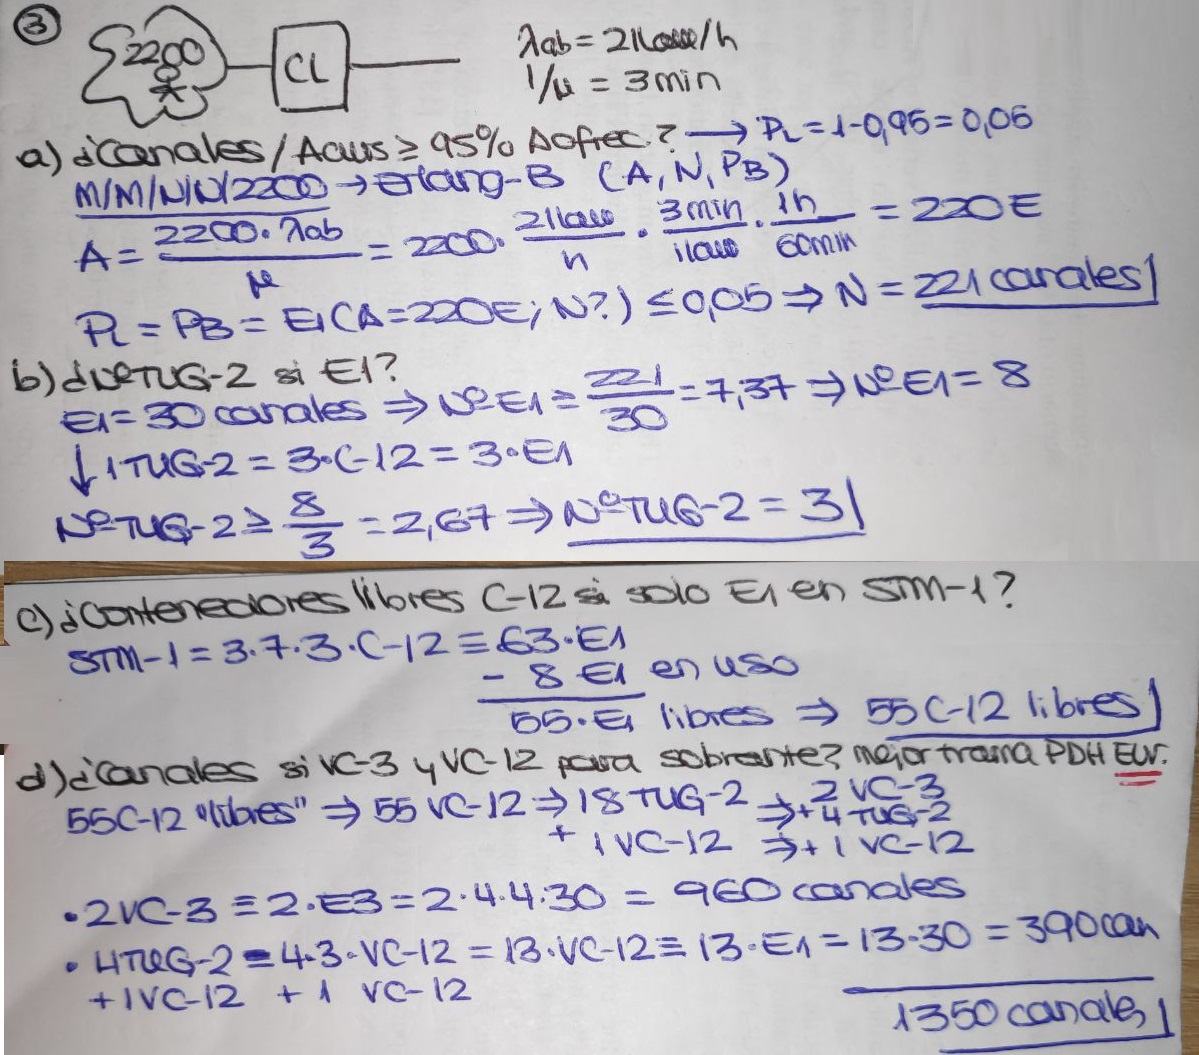 ③
2200
CL
λab = 2llam/h
1/μ = 3min
a) ¿Canales/Acurs ≥ 95% Aofrec.? → PL = 1-0,95 = 0,05
M/M/N/N/2200 → Erlang-B (A, N, PB)
A = 2200·λab / μ = 2200· 2llam/h · 3min/1llam · 1h/60min = 220E
PL = PB = E1(A=220E; N?) ≤ 0,05 ⇒ N = 221 canales
b) ¿Nº TUG-2 si E1?
E1 = 30 canales ⇒ Nº E1 ≥ 221/30 = 7,37 ⇒ Nº E1 = 8
↓ 1TUG-2 = 3·C-12 = 3·E1
Nº TUG-2 ≥ 8/3 = 2,67 ⇒ Nº TUG-2 = 3
c) ¿Contenedores libres C-12 si solo E1 en STM-1?
STM-1 = 3·7·3·C-12 ≡ 63·E1
- 8 E1 en uso
55·E1 libres ⇒ 55 C-12 libres
d) ¿Canales si VC-3 y VC-12 para sobrante? mejor trama PDH EUR.
55C-12 "libres" ⇒ 55 VC-12 ⇒ 18 TUG-2 ⇒ 2 VC-3
+ 4 TUG-2
+ 1 VC-12 ⇒ + 1 VC-12
• 2VC-3 ≡ 2·E3 = 2·4·4·30 = 960 canales
• 4TUG-2 = 4·3·VC-12 = 13·VC-12 ≡ 13·E1 = 13·30 = 390 can
+1VC-12 + 1 VC-12
1350 canales